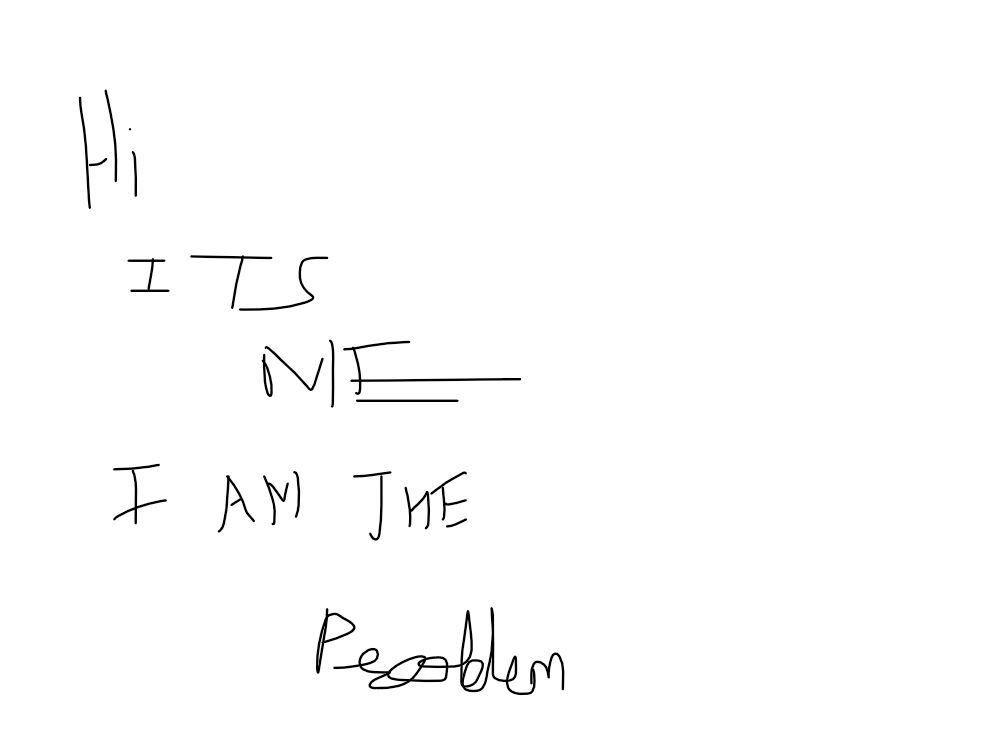 Hi
ITS
ME
I AM THE
Problem